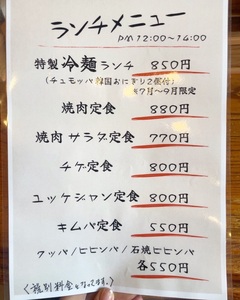 ランチメニュー
PM 12:00~14:00
特製 冷麺 ランチ 850円
(チュモッパ 韓国おにぎり2個付)
※7月~9月限定
焼肉定食 880円
焼肉 サラダ 定食 770円
チゲ定食 800円
ユッケジャン定食 800円
キムパ定食 550円
クッパ/ビビンバ/石焼ビビンバ
各550円